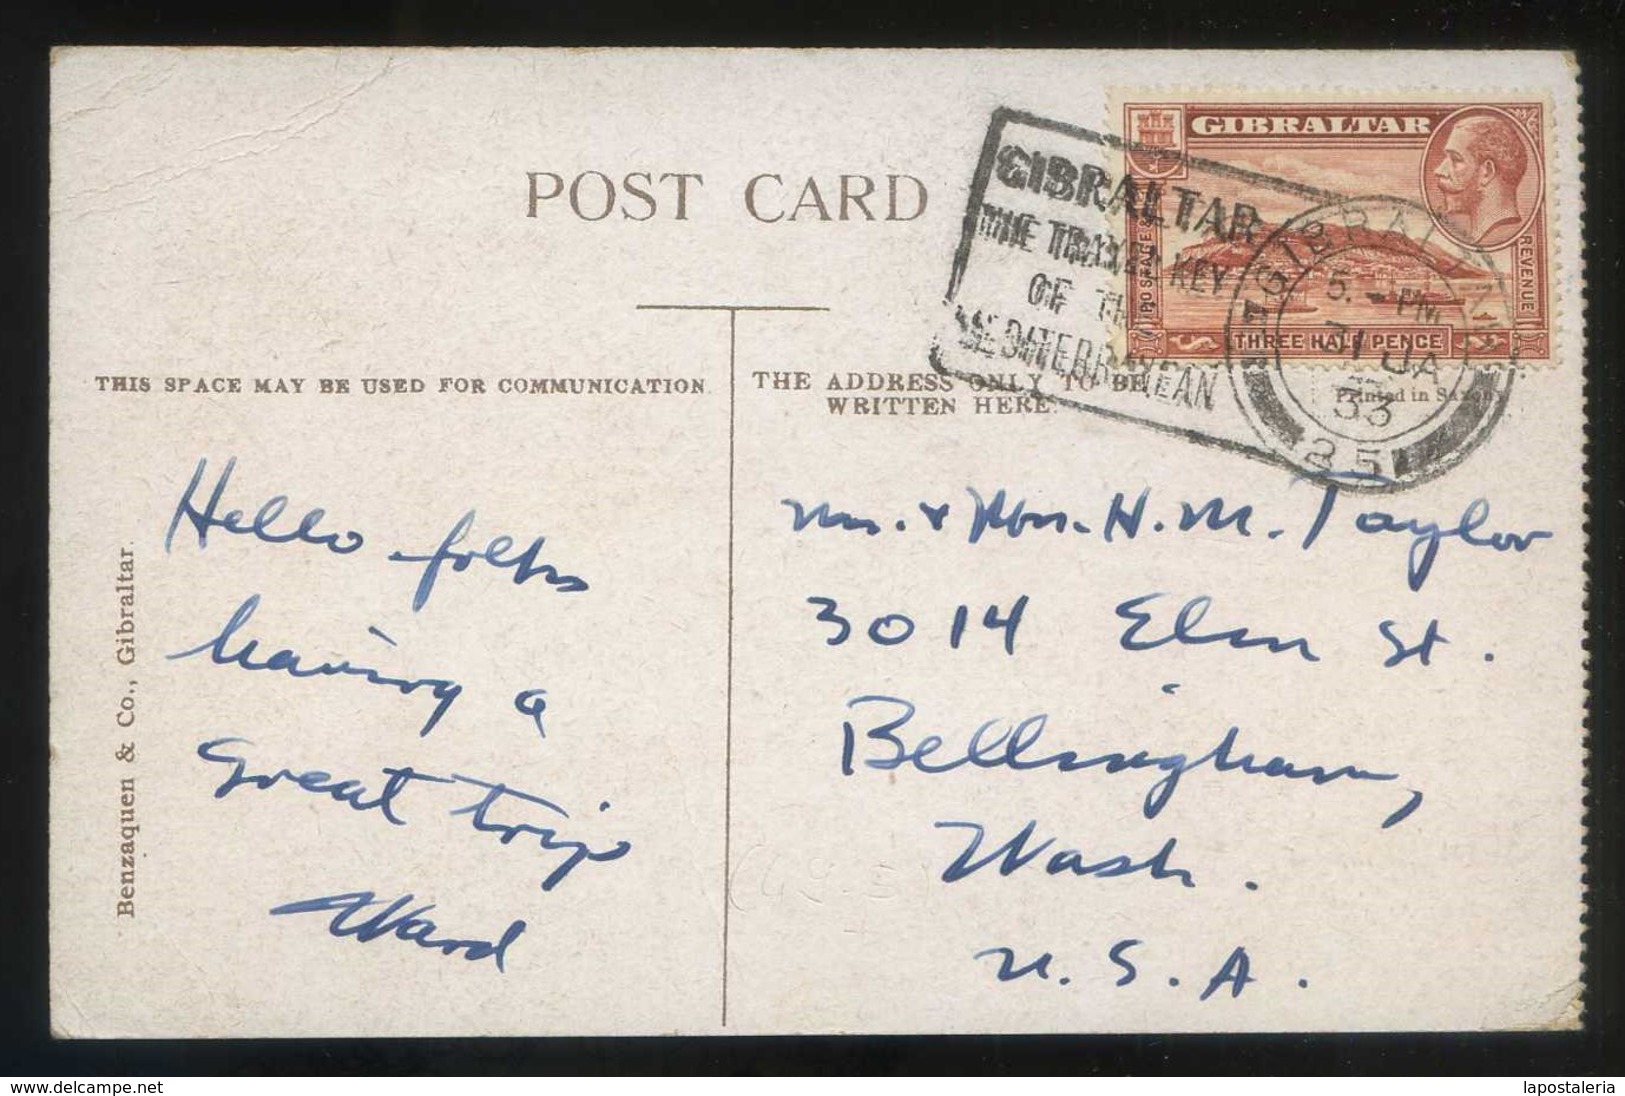 POST CARD
GIBRALTAR
POSTAGE &
REVENUE
THREE HALF PENCE
GIBRALTAR
THE TRAVEL KEY
OF THE
MEDITERRANEAN
GIBRALTAR
5. - PM
31 JA
33
25
THIS SPACE MAY BE USED FOR COMMUNICATION.
THE ADDRESS ONLY TO BE
WRITTEN HERE.
Printed in Saxony
Hello folks
having a
great trip
Ward
Mr. & Mrs. H. M. Taylor
3014 Elm St.
Bellingham,
Wash.
U.S.A.
Benzaquen & Co., Gibraltar.
(45-5)
www.delcampe.net
lapostaleria